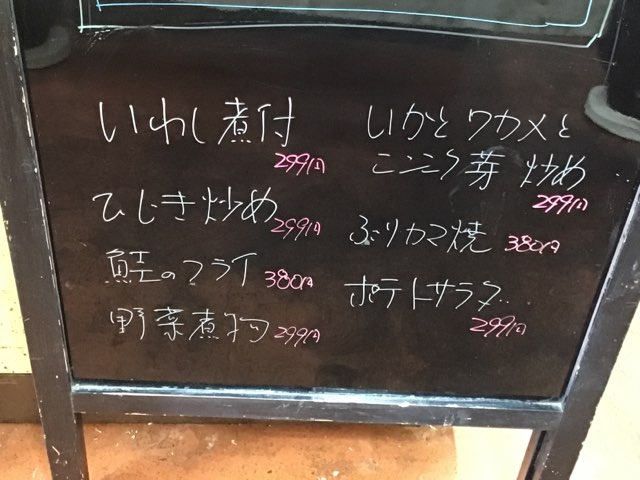 いわし煮付
299円
ひじき炒め
299円
鮭のフライ 380円
野菜煮物 299円
いかとワカメと
ニンニク芽 炒め
299円
ぶりカマ焼 380円
ポテトサラダ
299円